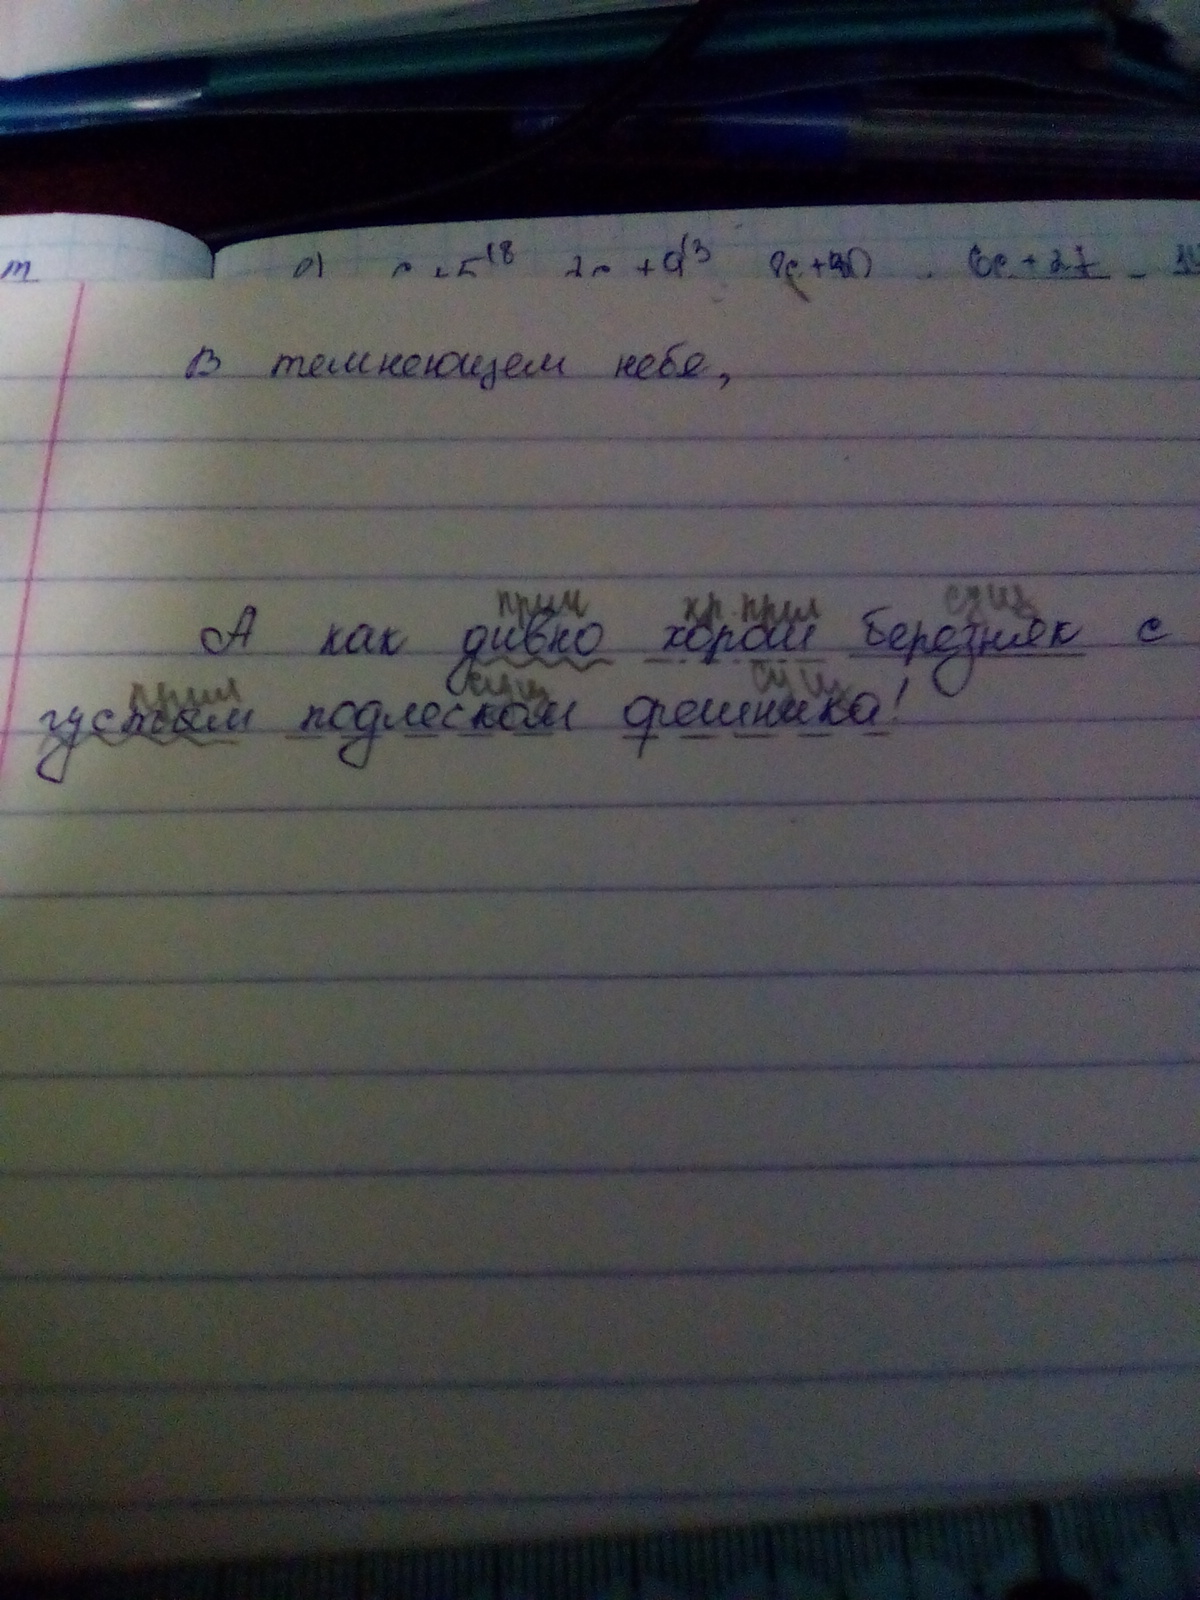 В темнеющем небе,
прил кр. прил сущ
А как дивно хорош березняк с
прил сущ сущ
густым подлеском орешника!